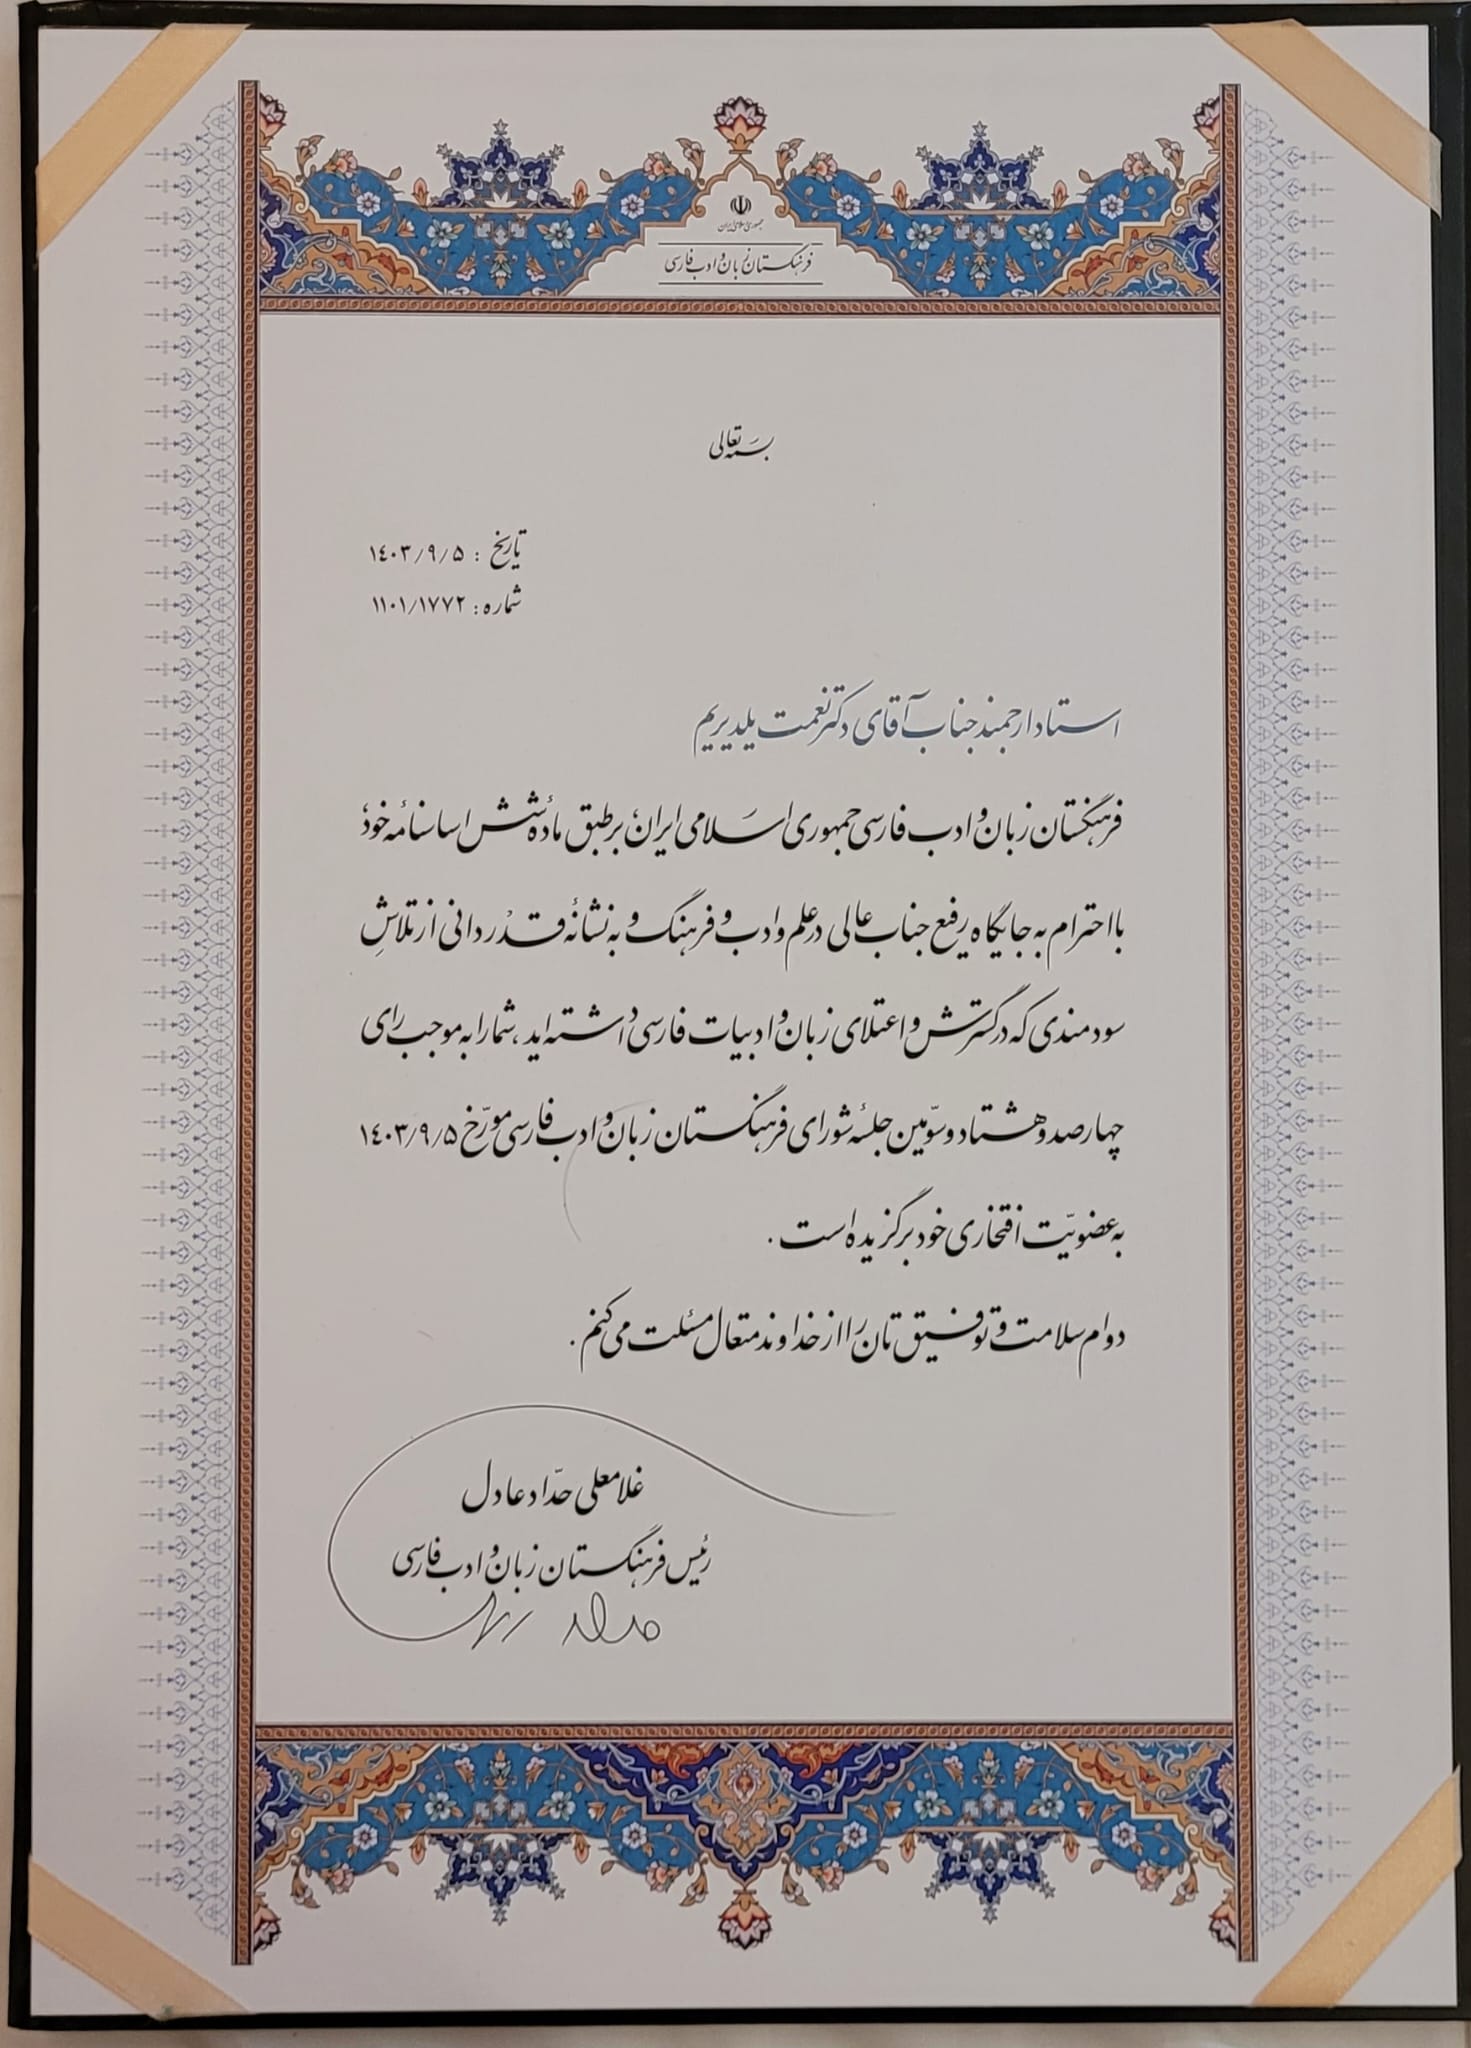 جمهوری اسلامی ایران
فرهنگستان زبان و ادب فارسی
بسمه تعالی
تاریخ : ۱۴۰۳/۹/۵
شماره : ۱۱۰۱/۱۷۷۲
استاد ارجمند جناب آقای دکتر نعمت یلدیریم
فرهنگستان زبان و ادب فارسی جمهوری اسلامی ایران، بر طبق مادهٔ شش اساسنامهٔ خود،
با احترام به جایگاه رفیع جناب عالی در علم و ادب و فرهنگ و به نشانهٔ قدردانی از تلاشِ
سودمندی که در گسترش و اعتلای زبان و ادبیات فارسی داشته اید، شما را به موجب رای
چهارصد و هشتاد و سوّمین جلسهٔ شورای فرهنگستان زبان و ادب فارسی مورّخ ۱۴۰۳/۹/۵
به عضویّت افتخاری خود برگزیده است .
دوام سلامت و توفیق تان را از خداوند متعال مسئلت می کنم .
غلامعلی حدّاد عادل
رئیس فرهنگستان زبان و ادب فارسی